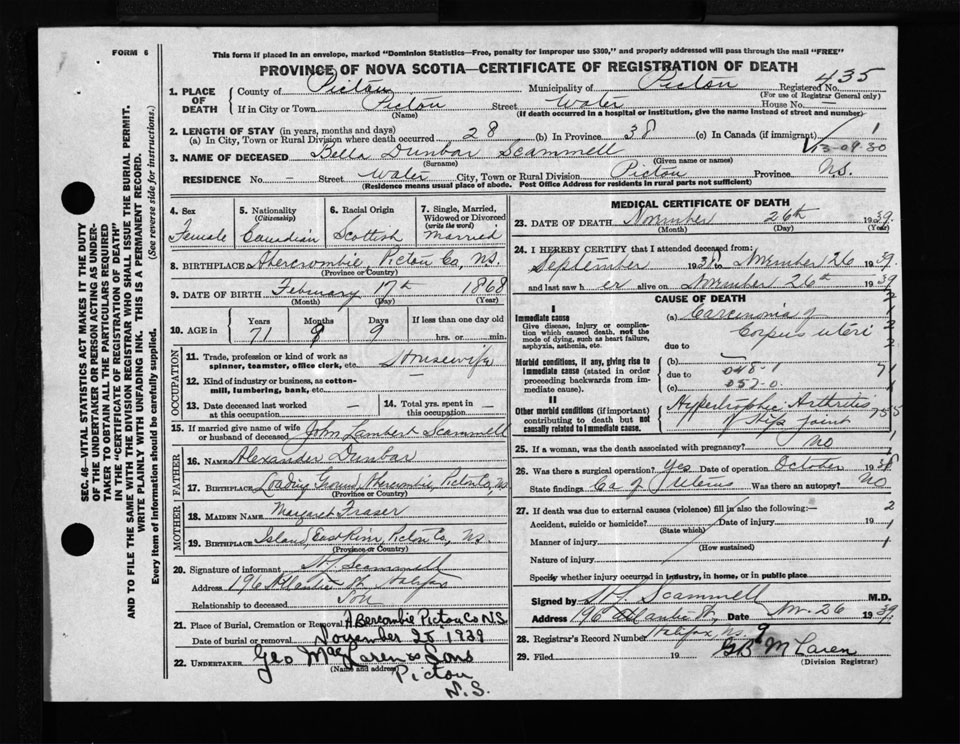 FORM 6
This form if placed in an envelope, marked "Dominion Statistics—Free, penalty for improper use $300," and properly addressed will pass through the mail "FREE"
PROVINCE OF NOVA SCOTIA—CERTIFICATE OF REGISTRATION OF DEATH
435
1. PLACE OF DEATH
County of Pictou Municipality of Pictou Registered No.
(For use of Registrar General only)
If in City or Town Pictou Street Water House No. —
(Name) (If death occurred in a hospital or institution, give the name instead of street and number)
2. LENGTH OF STAY (in years, months and days)
(a) In City, Town or Rural Division where death occurred 28 (b) In Province 38 (c) In Canada (if immigrant)
3. NAME OF DECEASED Bella Dunbar Scammell
(Surname) (Given name or names)
RESIDENCE No. — Street Water City, Town or Rural Division Pictou Province N.S.
(Residence means usual place of abode. Post Office Address for residents in rural parts not sufficient)
4. Sex Female
5. Nationality (Citizenship) Canadian
6. Racial Origin Scottish
7. Single, Married, Widowed or Divorced (write the word) Married
8. BIRTHPLACE Abercrombie, Pictou Co, N.S.
(Province or Country)
9. DATE OF BIRTH February 17th 1868
(Month) (Day) (Year)
10. AGE in Years Months Days If less than one day old
71 9 9 hrs. or min.
OCCUPATION
11. Trade, profession or kind of work as spinner, teamster, office clerk, etc. Housewife
12. Kind of industry or business, as cotton-mill, lumbering, bank, etc. —
13. Date deceased last worked at this occupation —
14. Total yrs. spent in this occupation —
15. If married give name of wife or husband of deceased John Lambert Scammell
FATHER
16. NAME Alexander Dunbar
17. BIRTHPLACE Loading Ground, Abercrombie, Pictou Co, N.S.
(Province or Country)
MOTHER
18. MAIDEN NAME Margaret Fraser
19. BIRTHPLACE Island, East River, Pictou Co., N.S.
(Province or Country)
20. Signature of informant Scammell
Address 196 Atlantic St. Halifax
Relationship to deceased Son
21. Place of Burial, Cremation or Removal Abercombie Pictou Co N.S.
Date of burial or removal November 28, 1939
22. UNDERTAKER Geo MacLaren & Sons
(Name and address)
Pictou
N.S.
MEDICAL CERTIFICATE OF DEATH
23. DATE OF DEATH November 26th 1939
(Month) (Day) (Year)
24. I HEREBY CERTIFY that I attended deceased from:
September 1938 to November 26 1939
and last saw her alive on November 26th 1939
CAUSE OF DEATH
I
Immediate cause
Give disease, injury or complication which caused death, not the mode of dying, such as heart failure, asphyxia, asthenia, etc.
(a) Carcinoma of Corpus uteri
due to
Morbid conditions, if any, giving rise to immediate cause (stated in order proceeding backwards from immediate cause).
(b)
due to 048-1
(c) 057-0
II
Other morbid conditions (if important) contributing to death but not causally related to immediate cause.
Hypertrophic Arthritis of Hip joint
25. If a woman, was the death associated with pregnancy? No
26. Was there a surgical operation? Yes Date of operation October 1938
State findings Ca of Uterus Was there an autopsy? No
27. If death was due to external causes (violence) fill in also the following:—
Accident, suicide or homicide? Date of injury 19
(State which)
Manner of injury
(How sustained)
Nature of injury
Specify whether injury occurred in industry, in home, or in public place
Signed by Scammell M.D.
Address 196 Atlantic St, Date Nov. 26 1939
Halifax, N.S.
28. Registrar's Record Number 9
29. Filed 19 GB McLaren
(Division Registrar)
SEC. 46—VITAL STATISTICS ACT MAKES IT THE DUTY
OF THE UNDERTAKER OR PERSON ACTING AS UNDER-
TAKER TO OBTAIN ALL THE PARTICULARS REQUIRED
IN THE "CERTIFICATE OF REGISTRATION OF DEATH"
AND TO FILE THE SAME WITH THE DIVISION REGISTRAR WHO SHALL ISSUE THE BURIAL PERMIT.
WRITE PLAINLY WITH UNFADING INK. THIS IS A PERMANENT RECORD.
Every item of information should be carefully supplied. (See reverse side for instructions.)